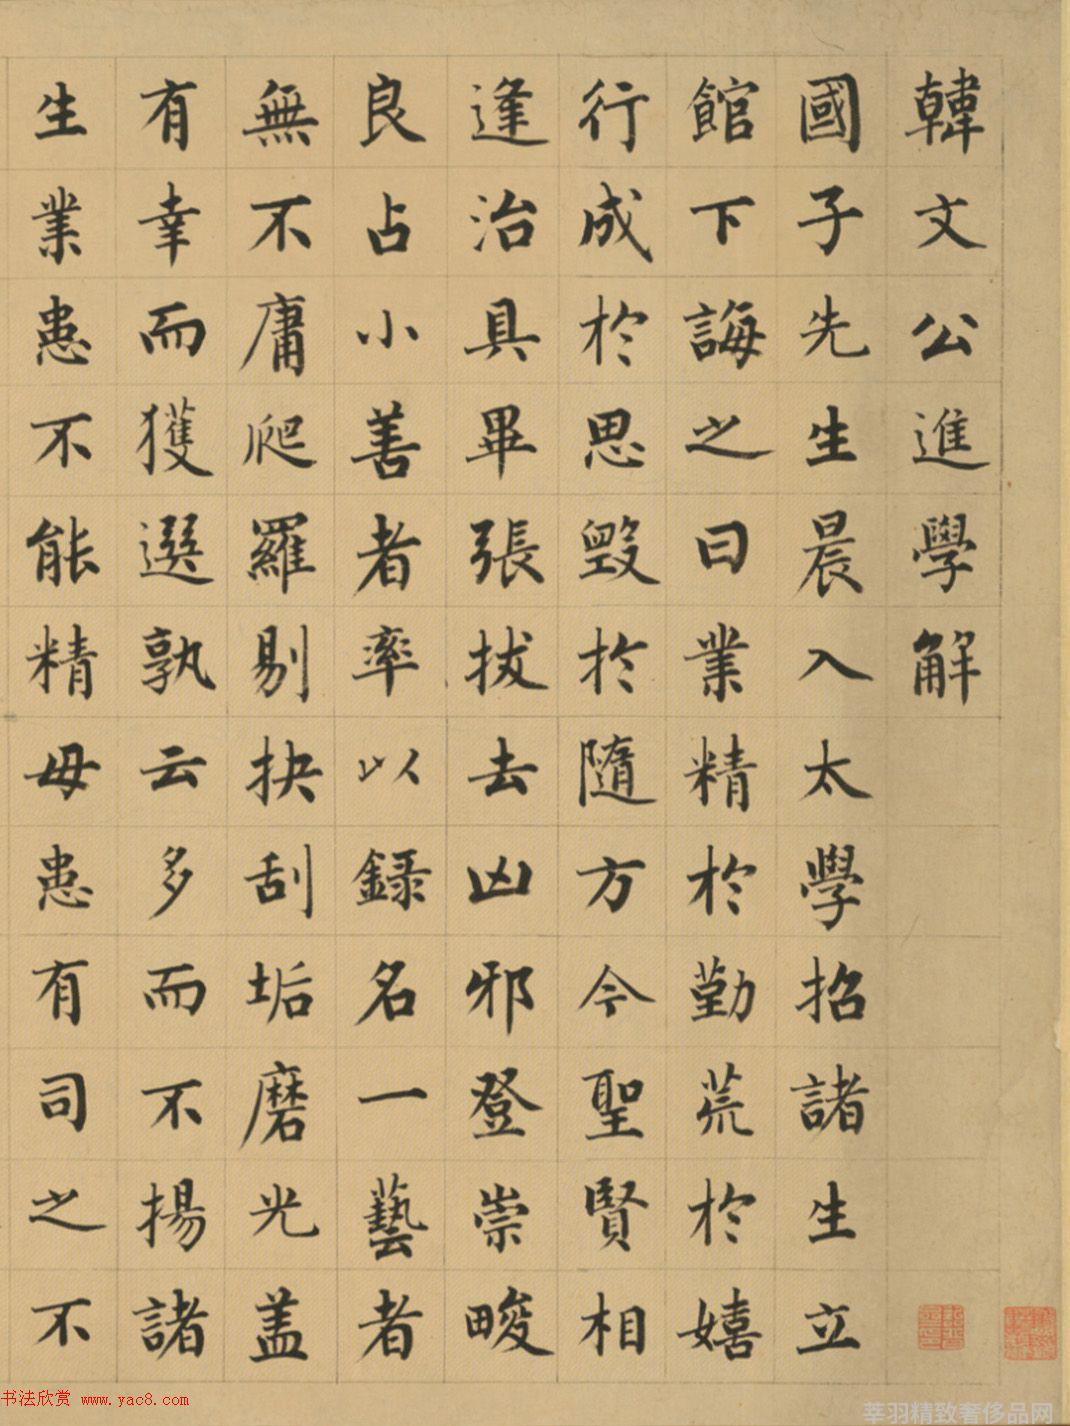 韓文公進學解
國子先生晨入太學招諸生立
館下誨之曰業精於勤荒於嬉
行成於思毀於隨方今聖賢相
逢治具畢張拔去凶邪登崇畯
良占小善者率以錄名一藝者
無不庸爬羅剔抉刮垢磨光盖
有幸而獲選孰云多而不揚諸
生業患不能精毋患有司之不
书法欣赏 www.yac8.com
莘羽精致奢侈品网